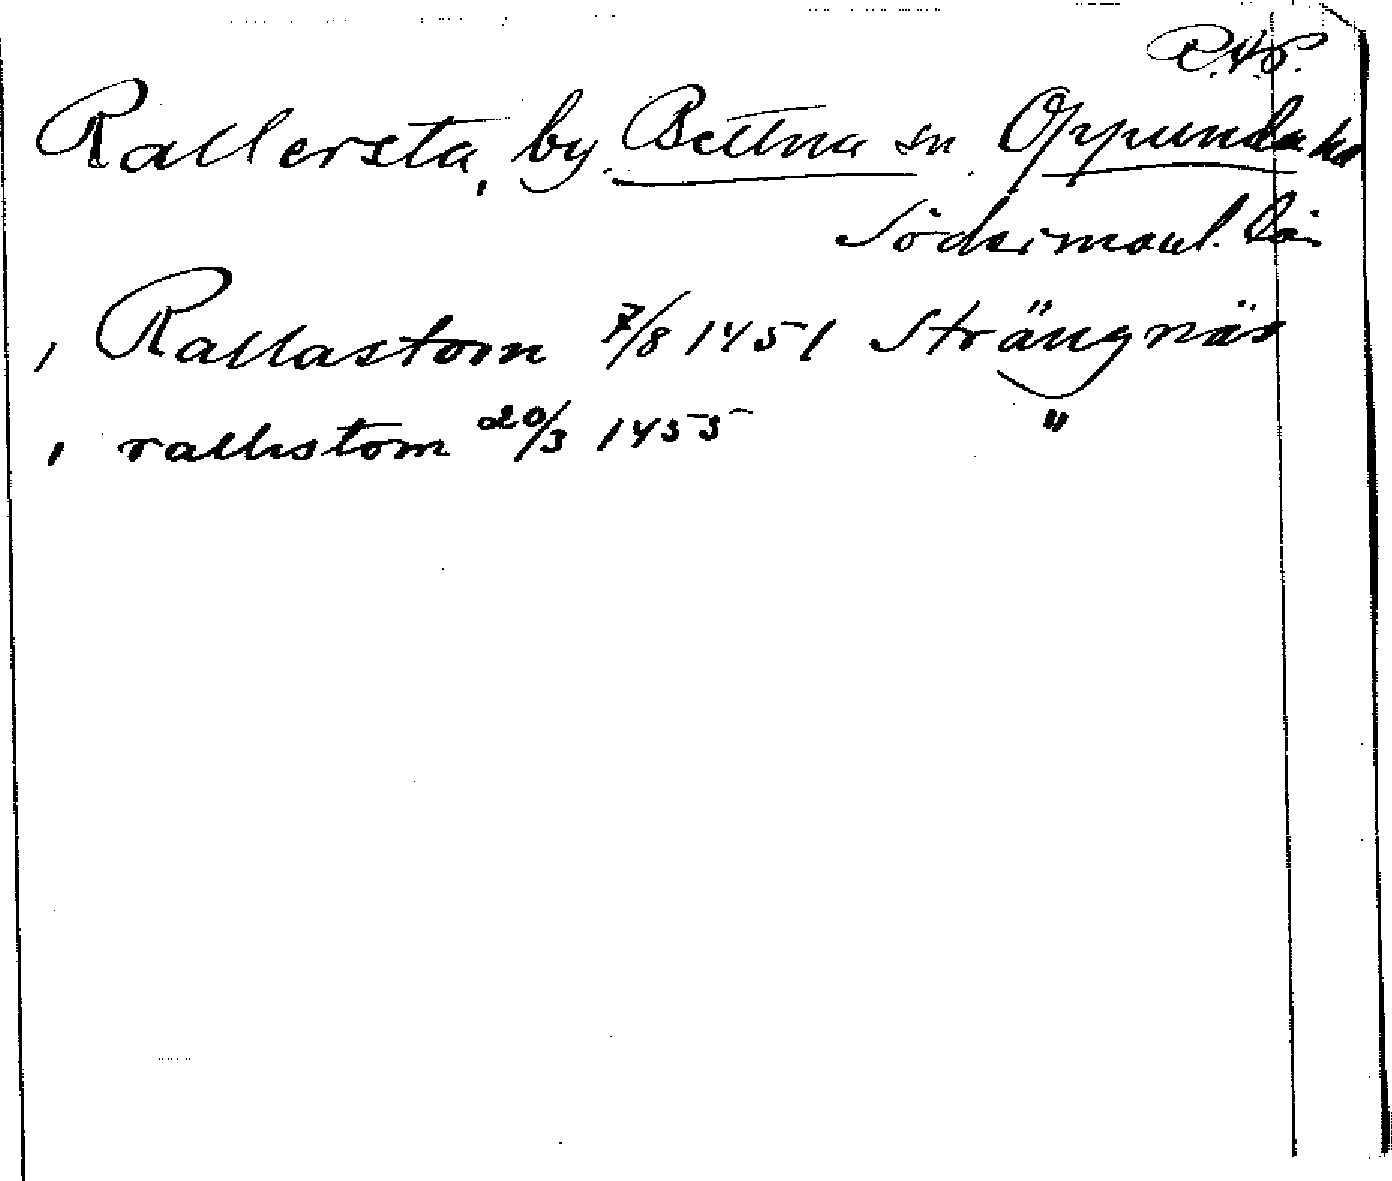 R.A.P.
Rallersta, by. Bettna sn. Oppunda hd
Södermanl. län
, Rallastom 7/8 1451 Strängnäs
, rallistom 20/3 1455 "